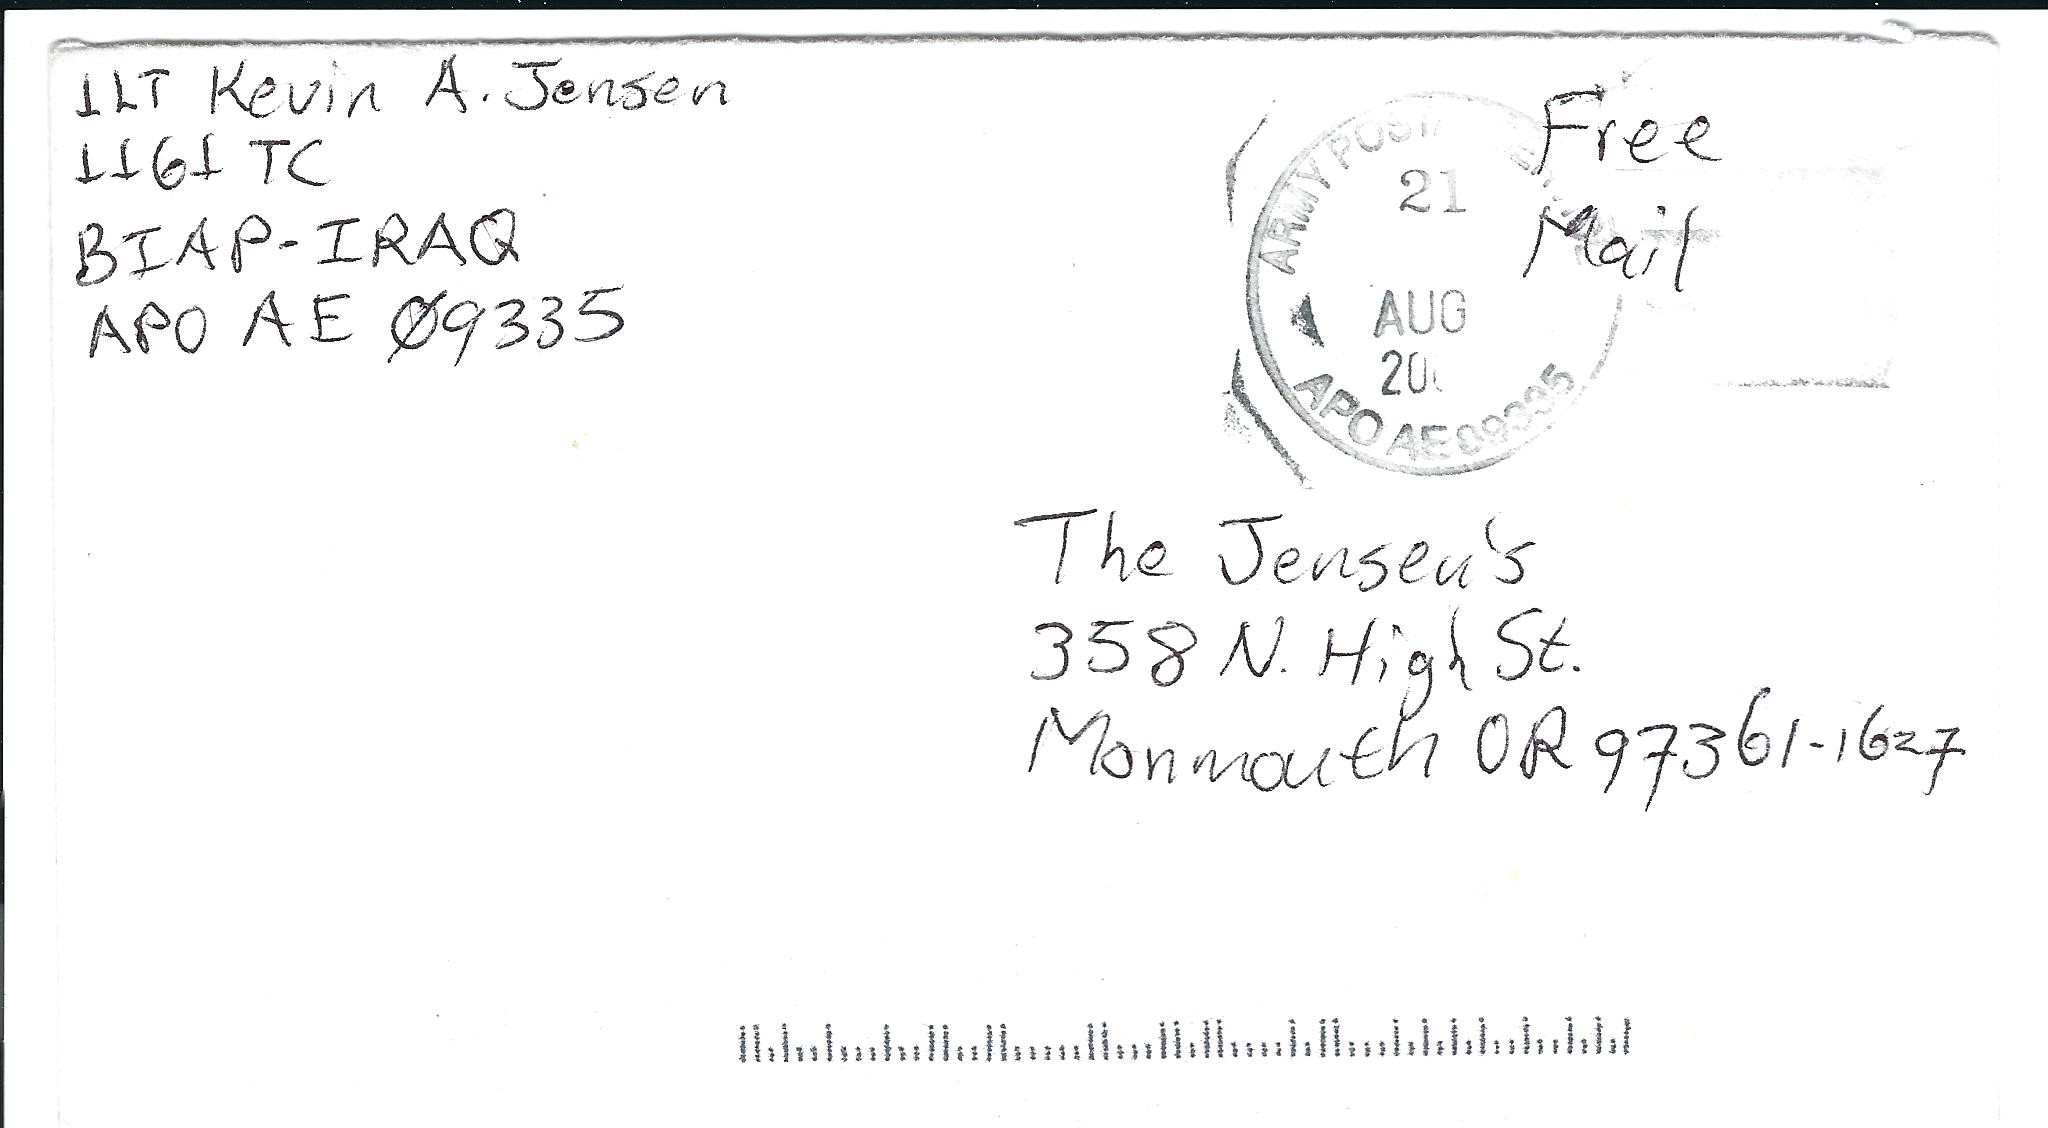 1LT Kevin A. Jensen
1161 TC
BIAP-IRAQ
APO AE 09335
Free
Mail
ARMY
21
AUG
APO AE 09335
The Jensen's
358 N. High St.
Monmouth OR 97361-1627